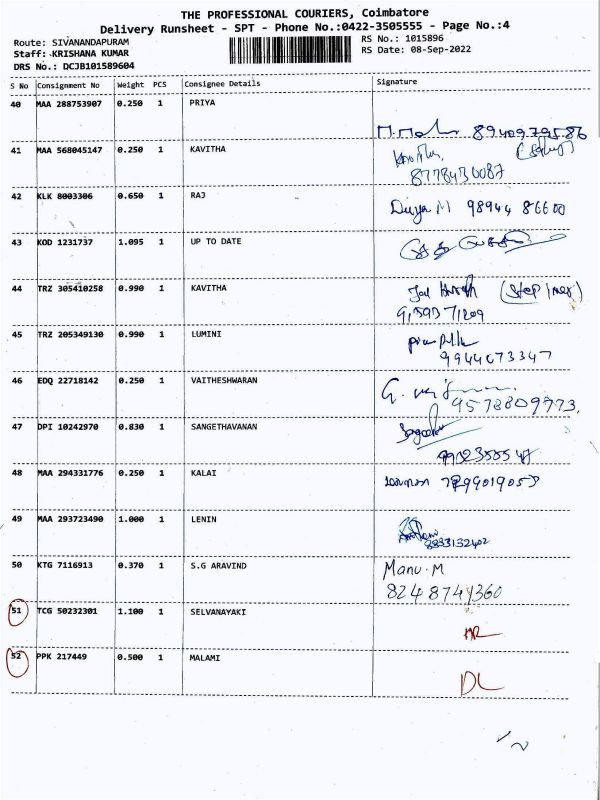 THE PROFESSIONAL COURIERS, Coimbatore
Delivery Runsheet - SPT - Phone No.:0422-3505555 - Page No.:4
Route: SIVANANDAPURAM RS No.: 1015896
Staff: KRISHANA KUMAR RS Date: 08-Sep-2022
DRS No.: DCJB101589604
S No Consignment No Weight PCS Consignee Details Signature
40 MAA 288753907 0.250 1 PRIYA
8940979586
41 MAA 568045147 0.250 1 KAVITHA
8778430087
42 KLK 8003306 0.650 1 RAJ Divya M 98944 86600
43 KOD 1231737 1.095 1 UP TO DATE
44 TRZ 305410258 0.990 1 KAVITHA
45 TRZ 205349130 0.990 1 LUMINI
9944073347
46 EDQ 22718142 0.250 1 VAITHESHWARAN
9578809773
47 DPI 10242970 0.830 1 SANGETHAVANAN
48 MAA 294331776 0.250 1 KALAI
49 MAA 293723490 1.000 1 LENIN
8883132402
50 KTG 7116913 0.370 1 S.G ARAVIND Manu.M
8248741360
51 TCG 50232301 1.100 1 SELVANAYAKI
52 PPK 217449 0.500 1 MALAMI DL